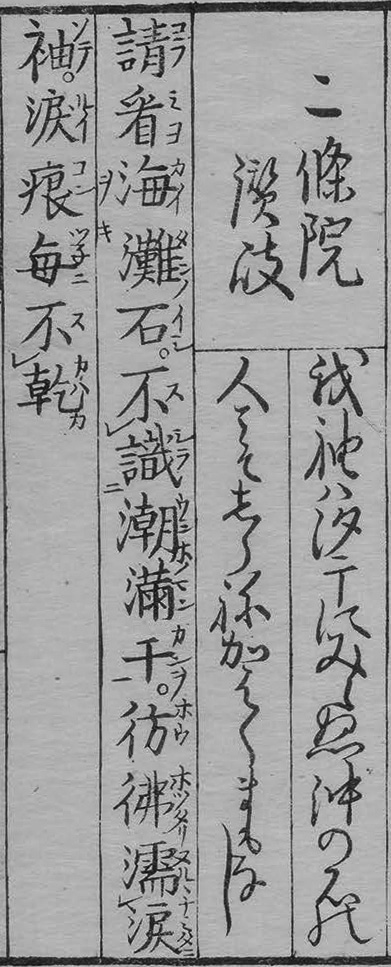 二條院
讚岐
我袖ハ汐干にみえぬ沖の石の
人こそしらね加はくまもなし
請看海灘石。不識潮滿干。彷彿濡淚
袖。淚痕每不乾